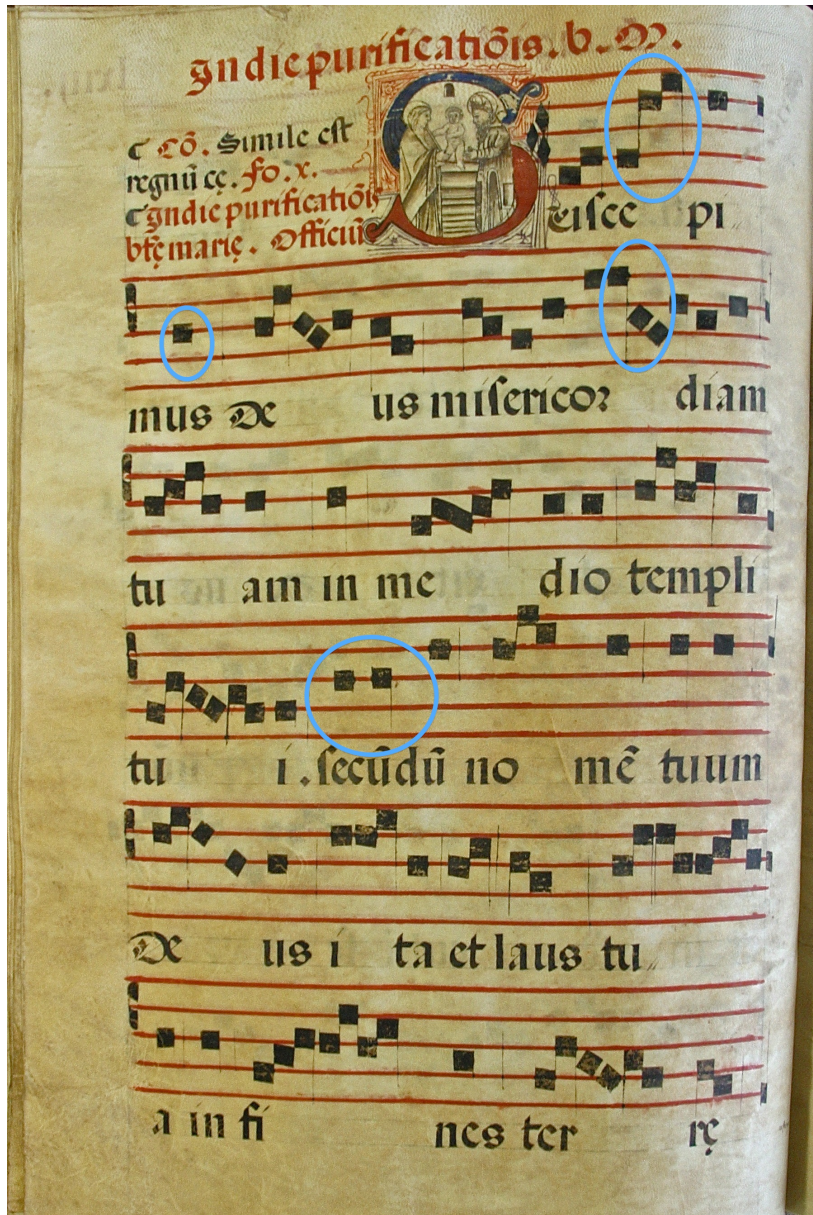 Jn die purificatiõis. b. M.
¶ Cõ. Simile est
regnũ cę. fo. x.
¶ Jn die purificatiõis
btę marię. Officiũ
Suscepi
mus De us misericor diam
tu am in me dio templi
tu i. secũdũ no mẽ tuum
De us i ta et laus tu
a in fi nes ter rę